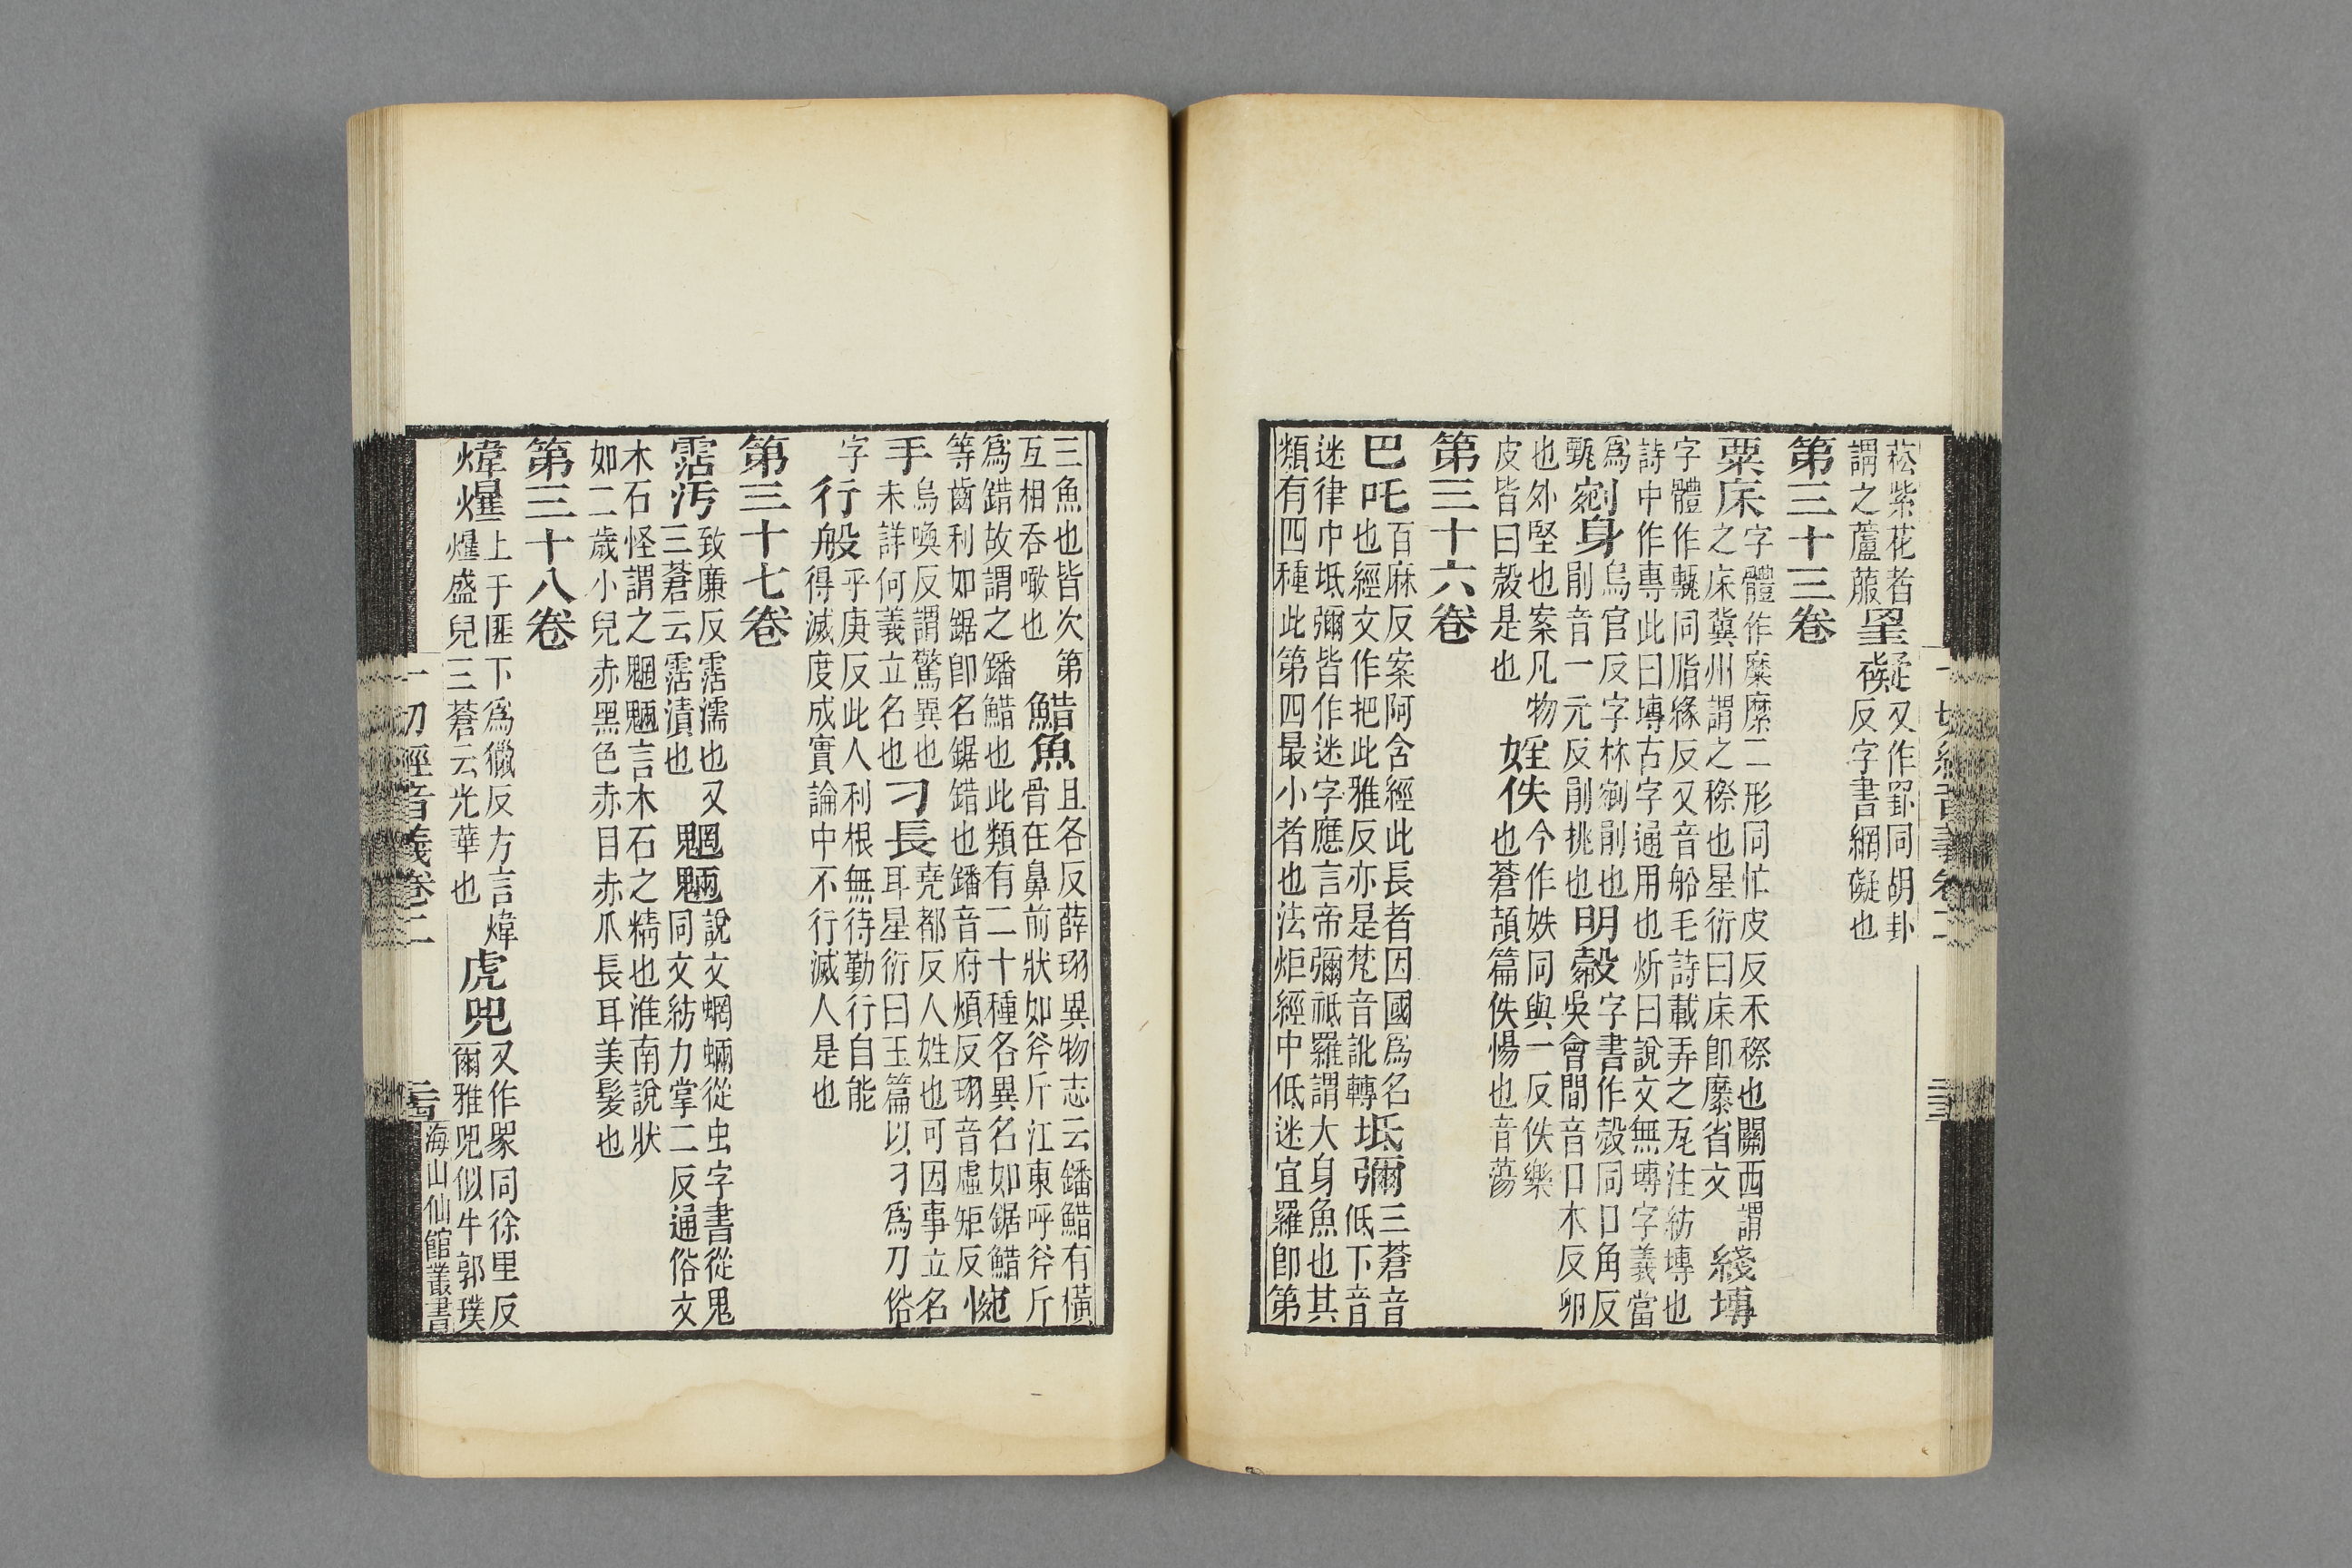 菘紫花者
謂之蘆菔
罣礙
又作罫同胡卦
反字書網礙也
第三十三卷
粟床
字體作穈䊳二形同忙皮反禾穄也關西謂
之床冀州謂之穄也星衍曰床即穈省文
綫塼
字體作甎同脂緣反又音船毛詩載弄之瓦注紡塼也
詩中作專此曰塼古字通用也炘曰說文無塼字義當
爲
甎
剜身
烏官反字林剜削也
削音一元反削挑也
明㲉
字書作㲉同口角反
吳會間音口木反卵
也外堅也案凡物
皮皆曰㲉是也
婬佚
今作妷同與一反佚樂
也蒼頡篇佚惕也音蕩
第三十六卷
巴吒
百麻反案阿含經此長者因國爲名
也經文作把此雅反亦是梵音訛轉
坻彌
三蒼音
低下音
迷律中坻彌皆作迷字應言帝彌祇羅謂大身魚也其
類有四種此第四最小者也法炬經中低迷宜羅即第
三魚也皆次第
互相吞噉也
䱜魚
且各反薛珝異物志云鱕䱜有橫
骨在鼻前狀如斧斤江東呼斧斤
爲錯故謂之鱕䱜也此類有二十種各異名如鋸䱜
等齒利如鋸即名鋸錯也鱕音府煩反珝音虛矩反
惋
手
烏喚反謂驚異也
未詳何義立名也
刁長
堯都反人姓也可因事立名
耳星衍曰玉篇以刁爲刀俗
字
行般
乎庚反此人利根無待勤行自能
得滅度成實論中不行滅人是也
第三十七卷
霑汚
致廉反霑濡也又
三蒼云霑漬也
魍魎
說文蝄蜽從虫字書從鬼
同文紡力掌二反通俗文
木石怪謂之魍魎言木石之精也淮南說狀
如二歲小兒赤黑色赤目赤爪長耳美髮也
第三十八卷
煒爗
上于匪下爲獵反方言煒
爗盛皃三蒼云光華也
虎兕
又作𤉡同徐里反
爾雅兕似牛郭璞
一切經音義卷二
海山仙館叢書